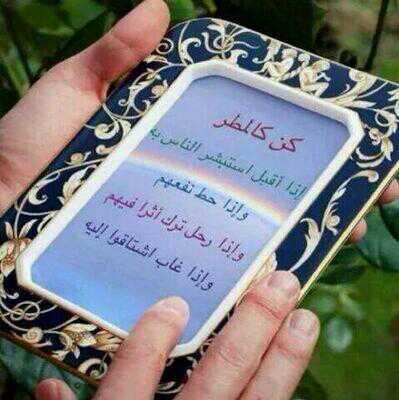 كن كالمطر
إذا أقبل استبشر الناس به
وإذا حط نفعهم
وإذا رحل ترك أثرا فيهم
وإذا غاب اشتاقوا إليه